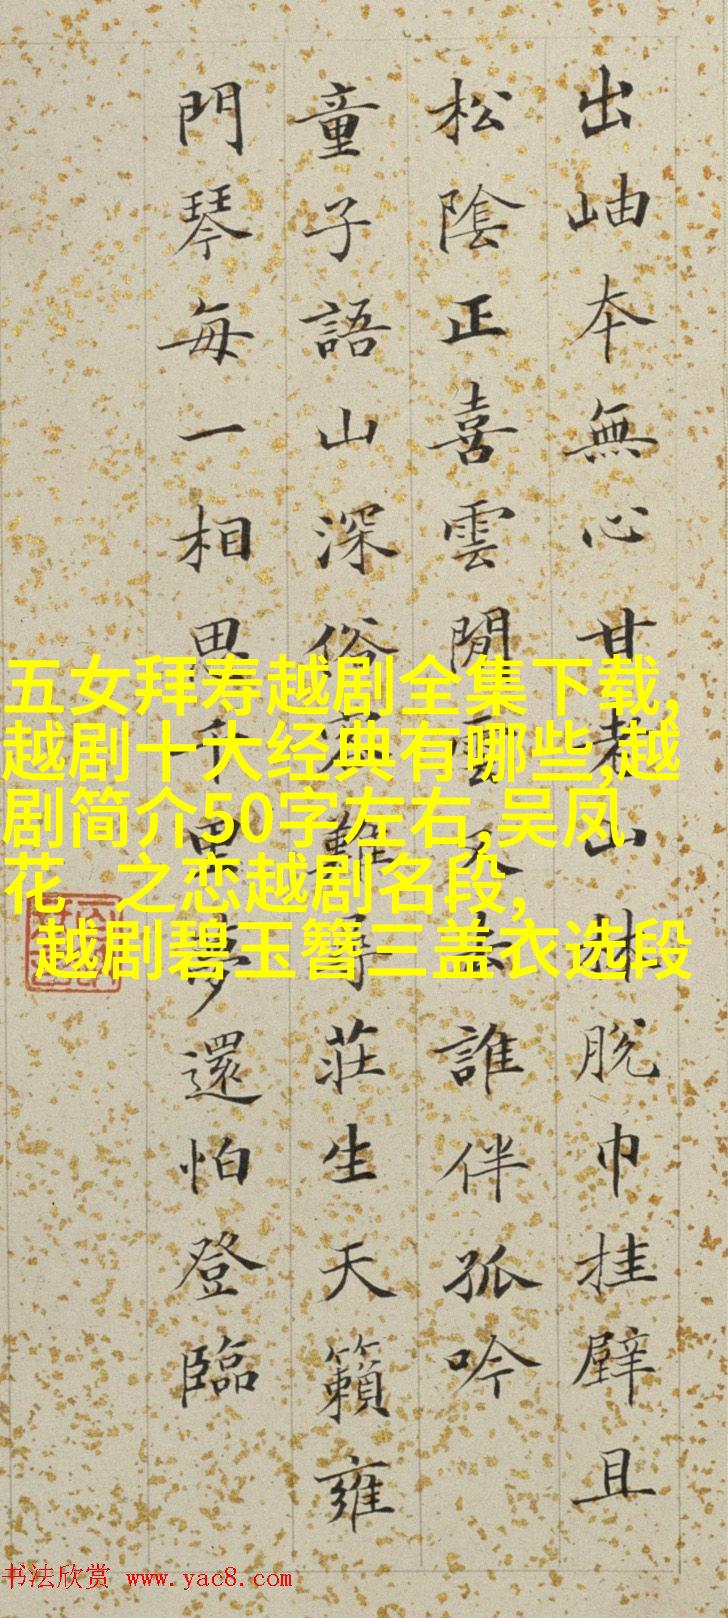 出岫本無心甘老山林脫巾挂壁且
松陰正喜雲閒雲又去誰伴孤吟
童子語山深俗難尋莊生天籟雍
門琴每一相思千里夢還怕登臨
五女拜寿越剧全集下载,
越剧十大经典有哪些,越
剧简介50字左右,吴凤
花 之恋越剧名段,
越剧碧玉簪三盖衣选段
书法欣赏 www.yac8.com